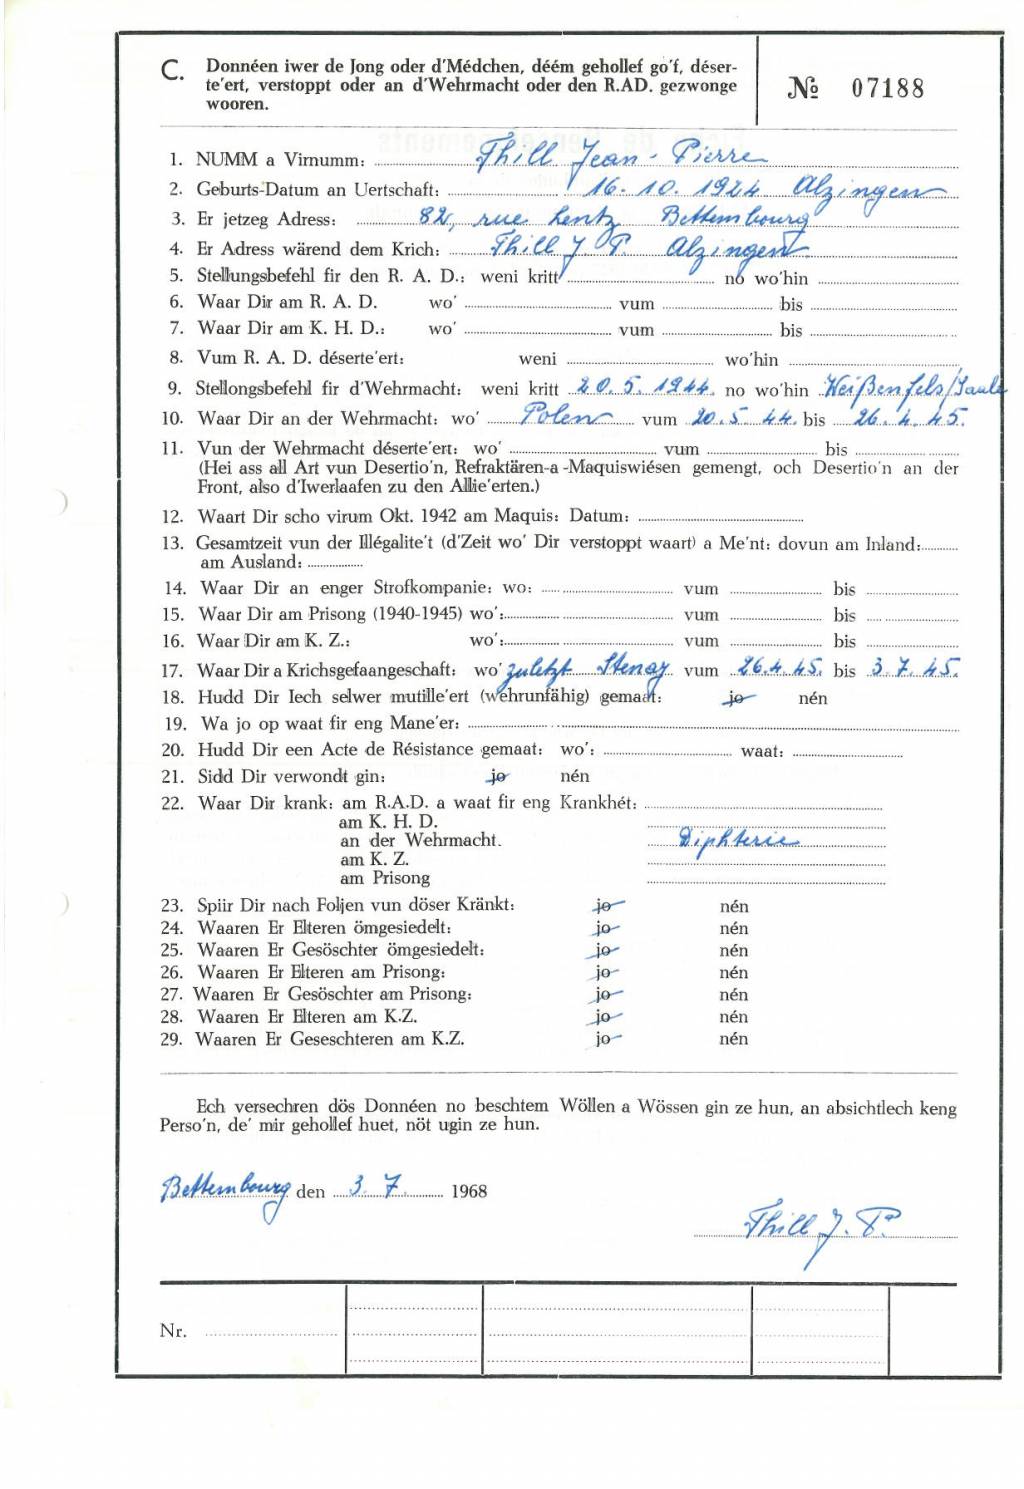 C. Donnéen iwer de Jong oder d'Médchen, déém gehollef go'f, déser-
te'ert, verstoppt oder an d'Wehrmacht oder den R.AD. gezwonge
wooren.
№ 07188
1. NUMM a Virnumm: Thill Jean-Pierre
2. Geburts-Datum an Uertschaft: 16.10.1924 Alzingen
3. Er jetzeg Adress: 82, rue Lentz Bettembourg
4. Er Adress wärend dem Krich: Thill J P. Alzingen
5. Stellungsbefehl fir den R. A. D.: weni kritt no wo'hin
6. Waar Dir am R. A. D. wo' vum bis
7. Waar Dir am K. H. D.: wo' vum bis
8. Vum R. A. D. déserte'ert: weni wo'hin
9. Stellongsbefehl fir d'Wehrmacht: weni kritt 20.5.1944. no wo'hin Weißenfels/Saale
10. Waar Dir an der Wehrmacht: wo' Polen vum 20.5 44. bis 26.4.45.
11. Vun der Wehrmacht déserte'ert: wo' vum bis
(Hei ass all Art vun Desertio'n, Refraktären-a-Maquiswiésen gemengt, och Desertio'n an der
Front, also d'Iwerlaafen zu den Allie'erten.)
12. Waart Dir scho virum Okt. 1942 am Maquis: Datum:
13. Gesamtzeit vun der Illégalite't (d'Zeit wo' Dir verstoppt waart) a Me'nt: dovun am Inland:
am Ausland:
14. Waar Dir an enger Strofkompanie: wo: vum bis
15. Waar Dir am Prisong (1940-1945) wo': vum bis
16. Waar Dir am K. Z.: wo': vum bis
17. Waar Dir a Krichsgefaangeschaft: wo' zuletzt Stenay vum 26.4.45. bis 3.7.45.
18. Hudd Dir Iech selwer mutille'ert (wehrunfähig) gemaat: jo nén
19. Wa jo op waat fir eng Mane'er:
20. Hudd Dir een Acte de Résistance gemaat: wo': waat:
21. Sidd Dir verwondt gin: jo nén
22. Waar Dir krank: am R.A.D. a waat fir eng Krankhét:
am K. H. D.
an der Wehrmacht. Diphterie
am K. Z.
am Prisong
23. Spiir Dir nach Foljen vun döser Kränkt: jo nén
24. Waaren Er Elteren ömgesiedelt: jo nén
25. Waaren Er Gesöschter ömgesiedelt: jo nén
26. Waaren Er Elteren am Prisong: jo nén
27. Waaren Er Gesöschter am Prisong: jo nén
28. Waaren Er Elteren am K.Z. jo nén
29. Waaren Er Geseschteren am K.Z. jo nén
Ech versechren dös Donnéen no beschtem Wöllen a Wössen gin ze hun, an absichtlech keng
Perso'n, de' mir gehollef huet, nöt ugin ze hun.
Bettembourg den 3. 7. 1968
Thill J. P.
Nr.